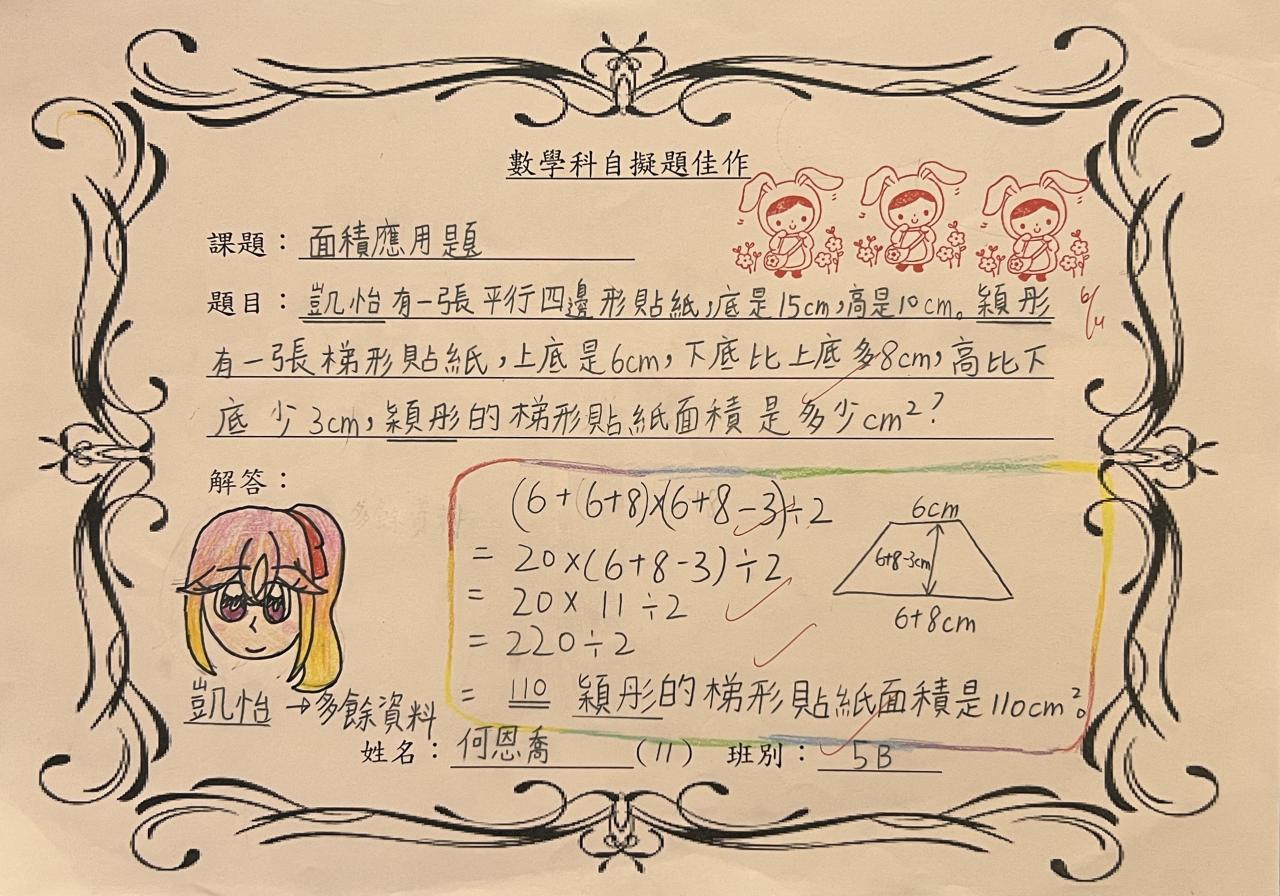 數學科自擬題佳作
課題：面積應用題
題目：凱怡有一張平行四邊形貼紙，底是15cm，高是10cm。穎彤
有一張梯形貼紙，上底是6cm，下底比上底多8cm，高比下
底少3cm，穎彤的梯形貼紙面積是多少cm²？
6/4
解答：
(6+(6+8)×(6+8-3)÷2
= 20×(6+8-3)÷2
= 20×11÷2
= 220÷2
= 110 穎彤的梯形貼紙面積是110cm²。
6cm
6+8-3cm
6+8cm
凱怡→多餘資料
姓名：何恩喬(11) 班別：5B